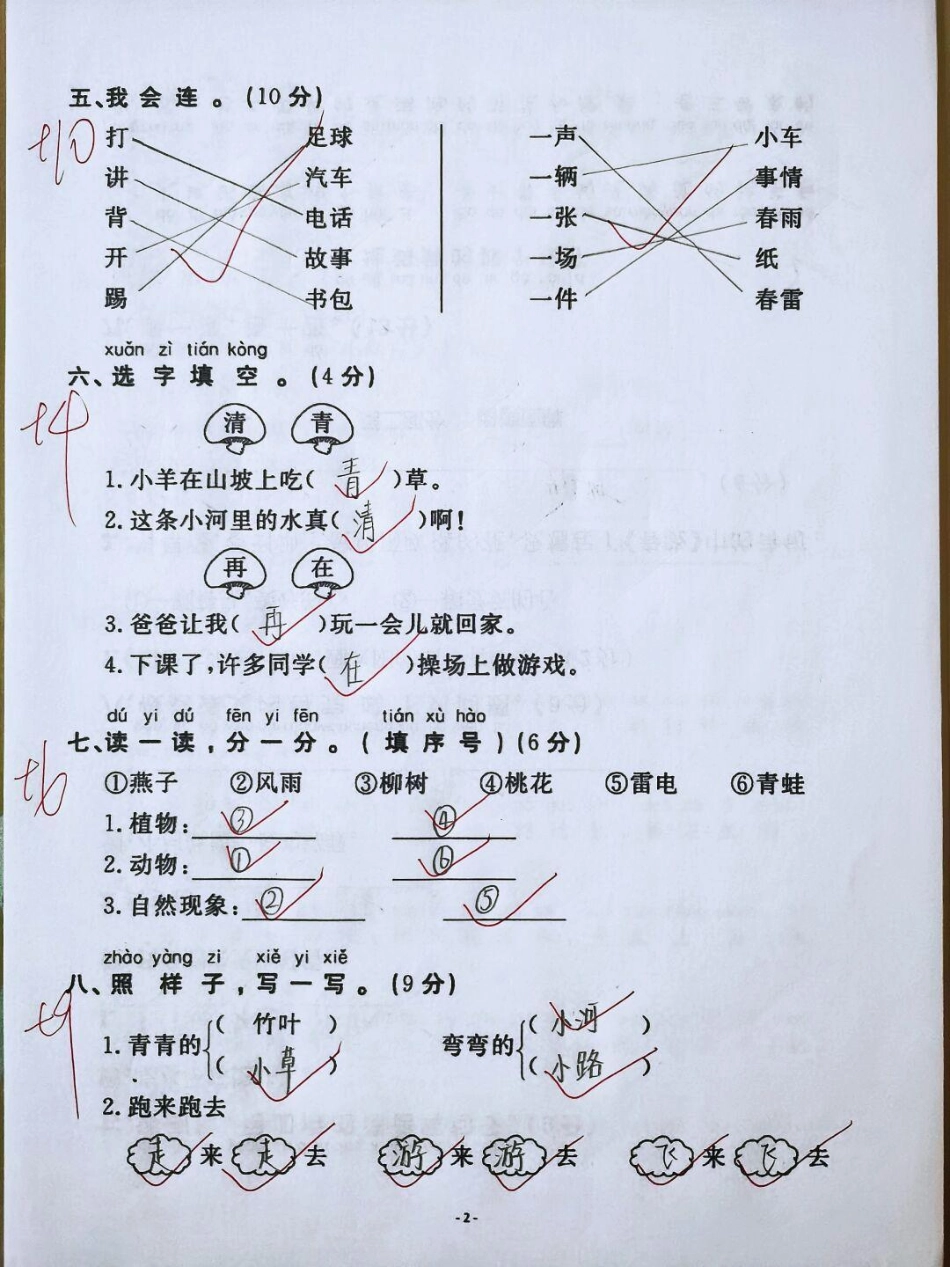 五、我会连。(10分)
+10
打 足球 一声 小车
讲 汽车 一辆 事情
背 电话 一张 春雨
开 故事 一场 纸
踢 书包 一件 春雷
xuǎn zì tián kòng
六、选字填空。(4分)
+4
清 青
1.小羊在山坡上吃(青)草。
2.这条小河里的水真(清)啊!
再 在
3.爸爸让我(再)玩一会儿就回家。
4.下课了,许多同学(在)操场上做游戏。
dú yi dú fēn yi fēn tián xù hào
七、读一读,分一分。(填序号)(6分)
+6
①燕子 ②风雨 ③柳树 ④桃花 ⑤雷电 ⑥青蛙
1.植物:③ ④
2.动物:① ⑥
3.自然现象:② ⑤
zhào yàng zi xiě yi xiě
八、照样子,写一写。(9分)
+9
1.青青的 (竹叶) (小草) 弯弯的 (小河) (小路)
2.跑来跑去
走来走去 游来游去 飞来飞去
-2-